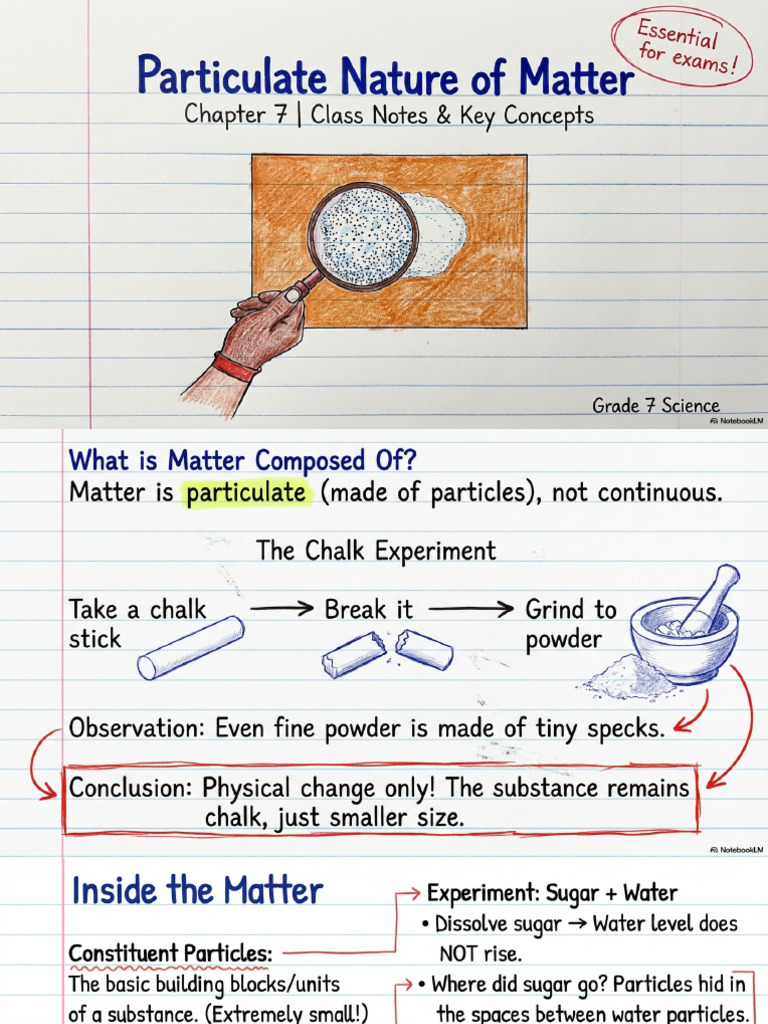 Essential
for exams!
Particulate Nature of Matter
Chapter 7 | Class Notes & Key Concepts
Grade 7 Science
NotebookLM
What is Matter Composed Of?
Matter is particulate (made of particles), not continuous.
The Chalk Experiment
Take a chalk
stick
Break it
Grind to
powder
Observation: Even fine powder is made of tiny specks.
Conclusion: Physical change only! The substance remains
chalk, just smaller size.
NotebookLM
Inside the Matter
Constituent Particles:
The basic building blocks/units
of a substance. (Extremely small!)
Experiment: Sugar + Water
• Dissolve sugar → Water level does
NOT rise.
• Where did sugar go? Particles hid in
the spaces between water particles.